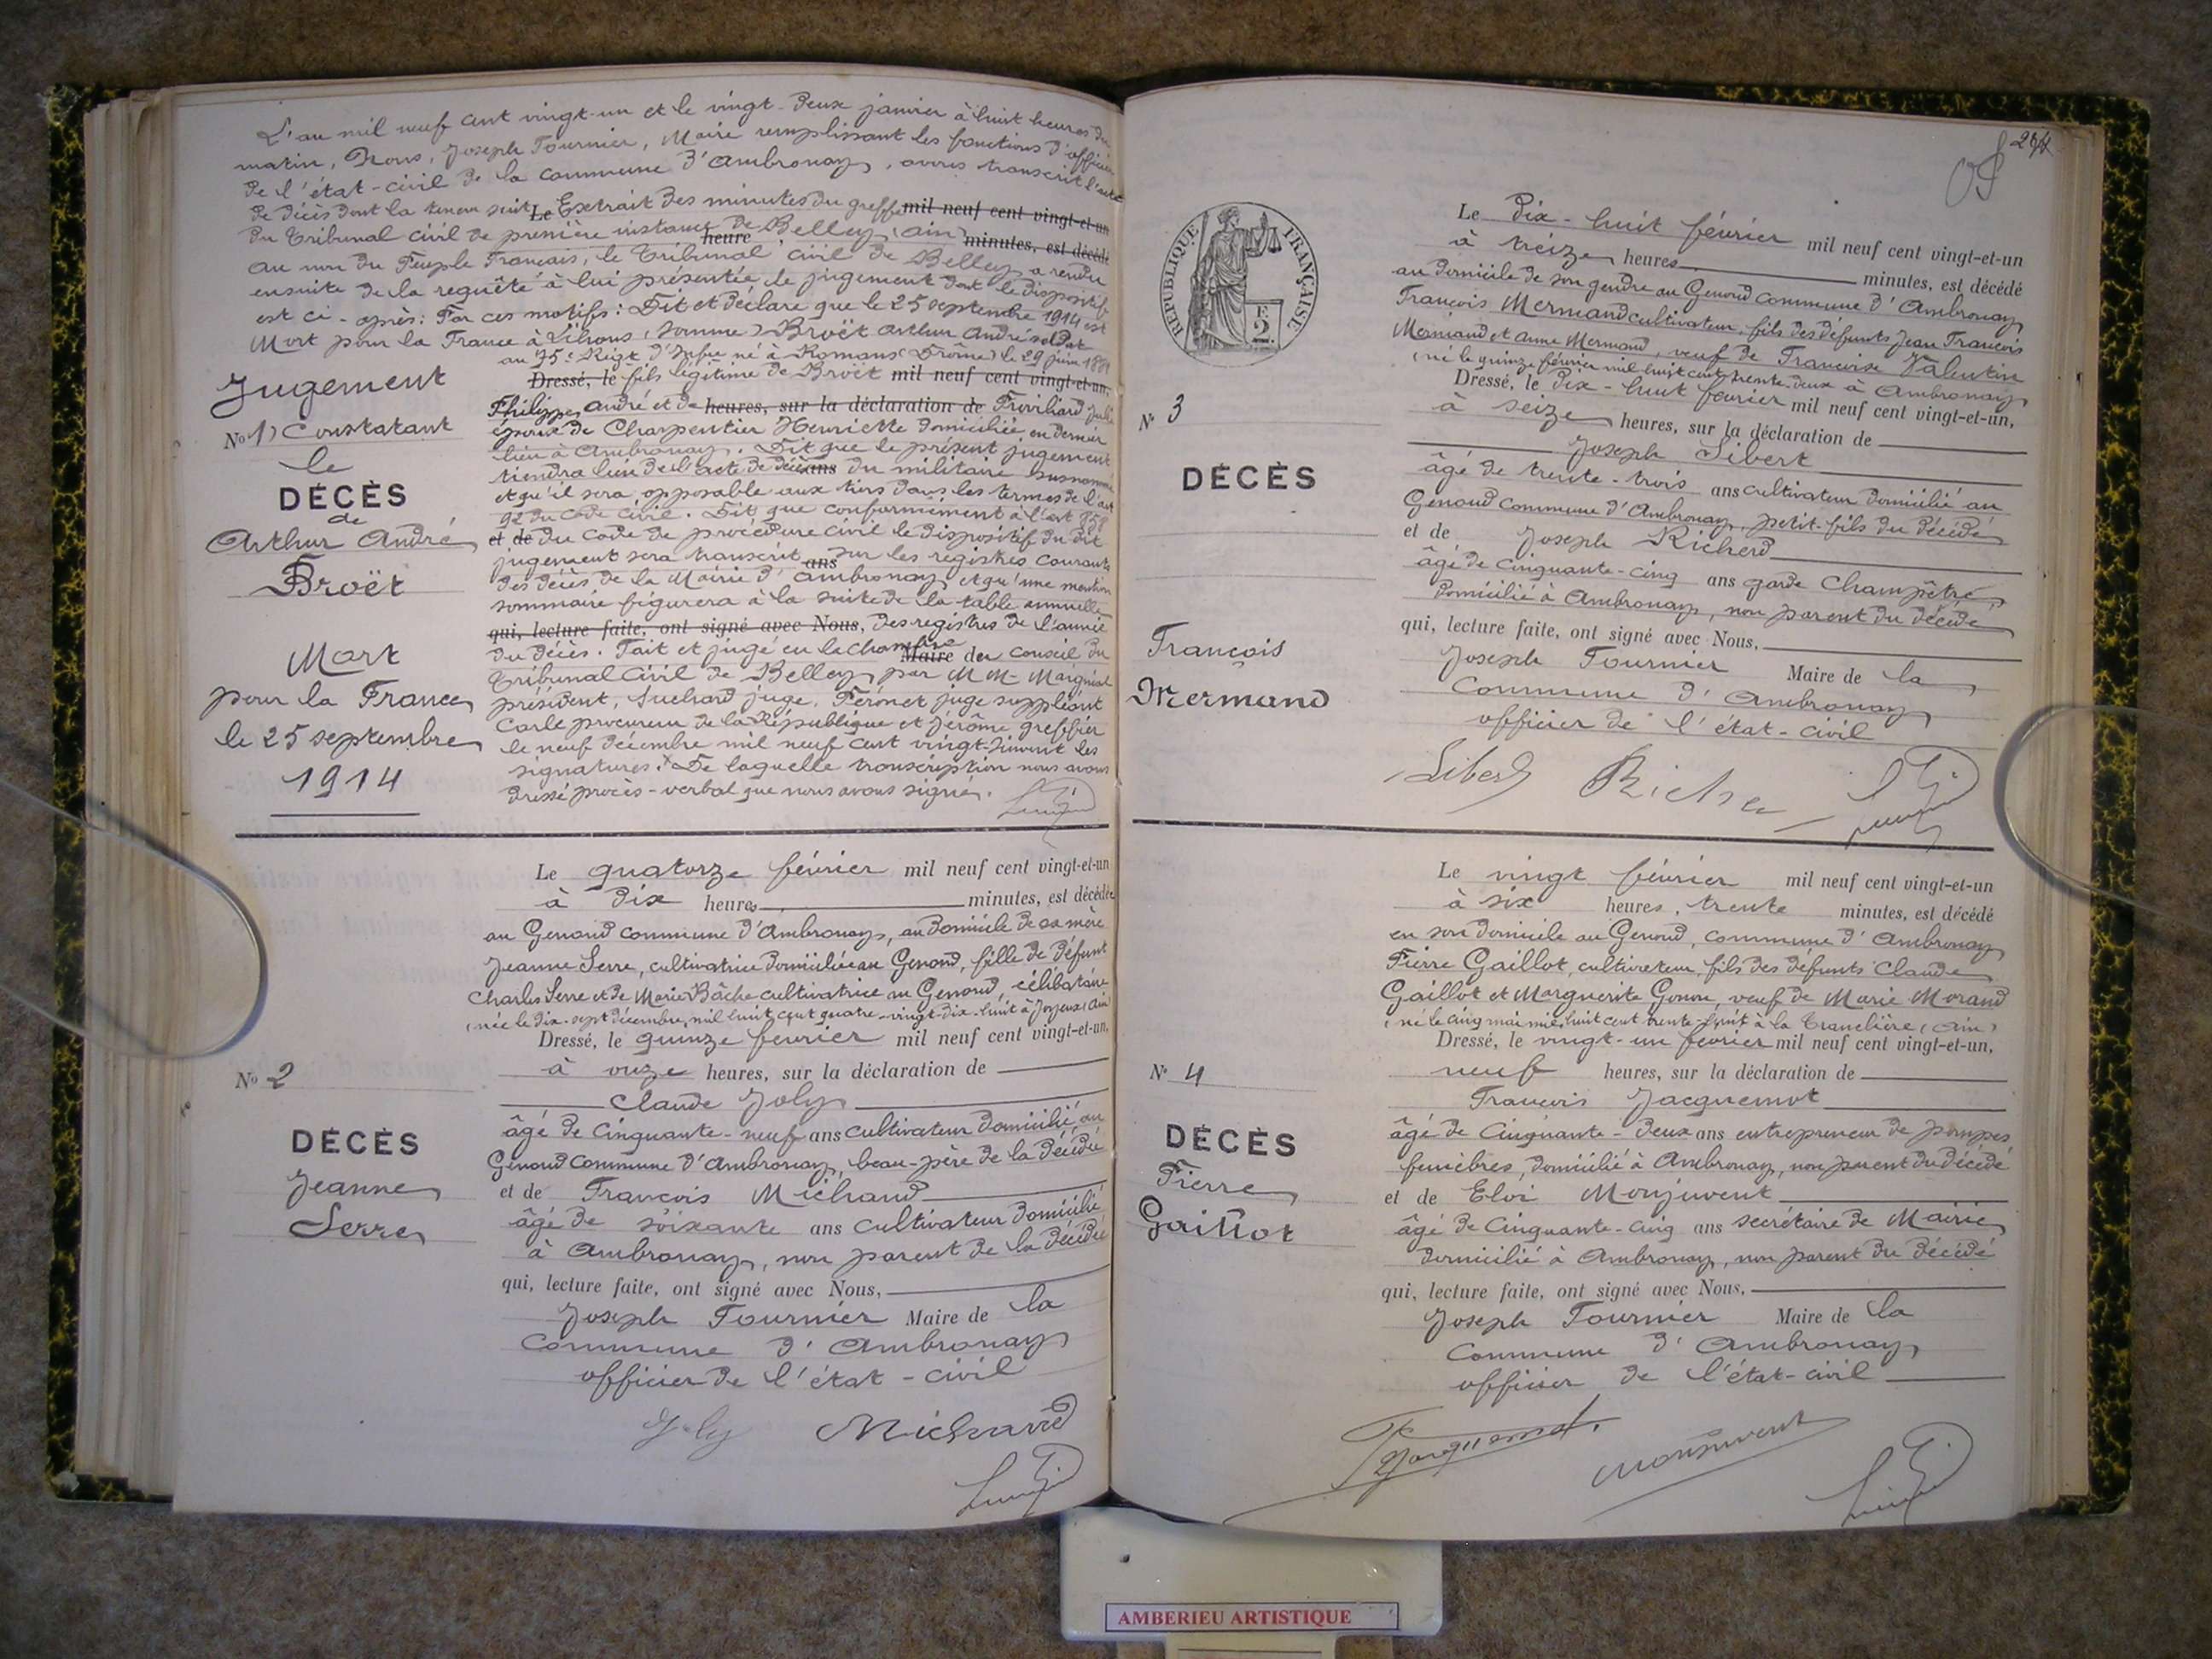 L'an mil neuf cent vingt-un et le vingt-deux janvier à huit heures du
matin, Nous, Joseph Tournier, Maire remplissant les fonctions d'officier
de l'état-civil de la commune d'Ambronay, avons transcrit l'acte
de décès dont la teneur suit Le Extrait des minutes du greffe mil neuf cent vingt-et-un
du Tribunal civil de première instance de Belley (Ain) heure minutes, est décédé
Au nom du Peuple Français, le Tribunal civil de Belley a rendu
ensuite de la requête à lui présentée, le jugement dont le dispositif
est ci-après: Par ces motifs: Dit et déclare que le 25 septembre 1914 est
Mort pour la France à Lihons (Somme) Broët Arthur André soldat
au 75e Régt d'Infie né à Romans (Drôme) le 29 juin 1881
Dressé, le fils légitime de Broët mil neuf cent vingt-et-un,
Philippe André et de heures, sur la déclaration de Julie
époux de Charpentier Henriette domiciliée en dernier
lieu à Ambronay. Dit que le présent jugement
tiendra lieu de l'acte de décès ans du militaire susnommé
et qu'il sera opposable aux tiers dans les termes de l'art
92 du code civil. Dit que conformément à l'art 858
et de du Code de procédure civil le dispositif du dit
jugement sera transcrit ans sur les registres courants
des décès de la Mairie d'Ambronay et qu'une mention
sommaire figurera à la suite de la table annuelle
qui, lecture faite, ont signé avec Nous, des registres de l'année
du décès. Fait et jugé en la chambre Maire de du conseil du
Tribunal Civil de Belley par MM. Margnat
président, Suchard juge, Péronet juge suppléant
Carle procureur de la République et Jérôme greffier
le neuf décembre mil neuf cent vingt. Suivent les
signatures. De laquelle transcription nous avons
dressé procès-verbal que nous avons signé.
Jugement
No 1) Constatant
le
DÉCÈS
de
Arthur André
Broët
Mort
pour la France
le 25 septembre
1914
Le quatorze février mil neuf cent vingt-et-un
à dix heures minutes, est décédée
au Genoud commune d'Ambronay, au domicile de sa mère
Jeanne Serre, cultivatrice domiciliée au Genoud, fille de défunt
Charles Serre et de Marie Bâche cultivatrice au Genoud, célibataire
(née le dix-sept décembre mil huit cent quatre-vingt-dix-huit à Joyeux (Ain)
Dressé, le quinze février mil neuf cent vingt-et-un,
à onze heures, sur la déclaration de
Claude Joly
âgé de cinquante-neuf ans cultivateur domicilié au
Genoud commune d'Ambronay, beau-père de la décédée
et de François Michaud
âgé de soixante ans cultivateur domicilié
à Ambronay, non parent de la décédée
qui, lecture faite, ont signé avec Nous,
Joseph Tournier Maire de la
Commune d'Ambronay
officier de l'état-civil
Joly Michaud
No 2
DÉCÈS
Jeanne
Serre
294
RÉPUBLIQUE FRANÇAISE
E
2
Le dix-huit février mil neuf cent vingt-et-un
à treize heures minutes, est décédé
au domicile de son gendre au Genoud commune d'Ambronay
François Mermand cultivateur, fils des défunts Jean François
Mermand et Anne Mermand, veuf de Françoise Valentin
(né le quinze février mil huit cent trente-deux à Ambronay
Dressé, le dix-huit février mil neuf cent vingt-et-un,
à seize heures, sur la déclaration de
Joseph Libert
âgé de trente-trois ans cultivateur domicilié au
Genoud commune d'Ambronay, petit-fils du décédé
et de Joseph Richerd
âgé de cinquante-cinq ans garde champêtre
domicilié à Ambronay, non parent du décédé
qui, lecture faite, ont signé avec Nous,
Joseph Tournier Maire de la
Commune d'Ambronay
officier de l'état-civil
Libert
N° 3
DÉCÈS
François
Mermand
Le vingt février mil neuf cent vingt-et-un
à six heures, trente minutes, est décédé
en son domicile au Genoud, commune d'Ambronay
Pierre Gaillot, cultivateur, fils des défunts Claude
Gaillot et Marguerite Gonon, veuf de Marie Morand
(né le cinq mai mil huit cent trente-huit à la Tranclière (Ain)
Dressé, le vingt-un février mil neuf cent vingt-et-un,
neuf heures, sur la déclaration de
François Jacquemot
âgé de cinquante-deux ans entrepreneur de pompes
funèbres, domicilié à Ambronay, non parent du décédé
et de Eloi Monjuvent
âgé de cinquante-cinq ans secrétaire de Mairie
domicilié à Ambronay, non parent du décédé
qui, lecture faite, ont signé avec Nous,
Joseph Tournier Maire de la
Commune d'Ambronay
officier de l'état-civil
Jacquemot Monjuvent
N° 4
DÉCÈS
Pierre
Gaillot
AMBERIEU ARTISTIQUE